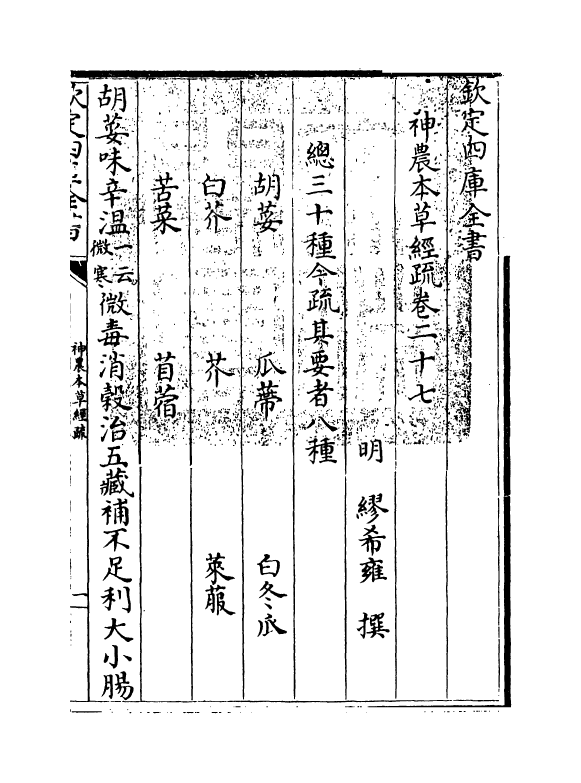 欽定四庫全書
神農本草經疏卷二十七
明 繆希雍 撰
總三十種今疏其要者八種
胡荽 瓜蒂 白冬瓜
白芥 芥 萊菔
苦菜 苜蓿
胡荽味辛温一云微寒微毒消穀治五藏補不足利大小腸
欽定四庫全書
神農本草經疏
一